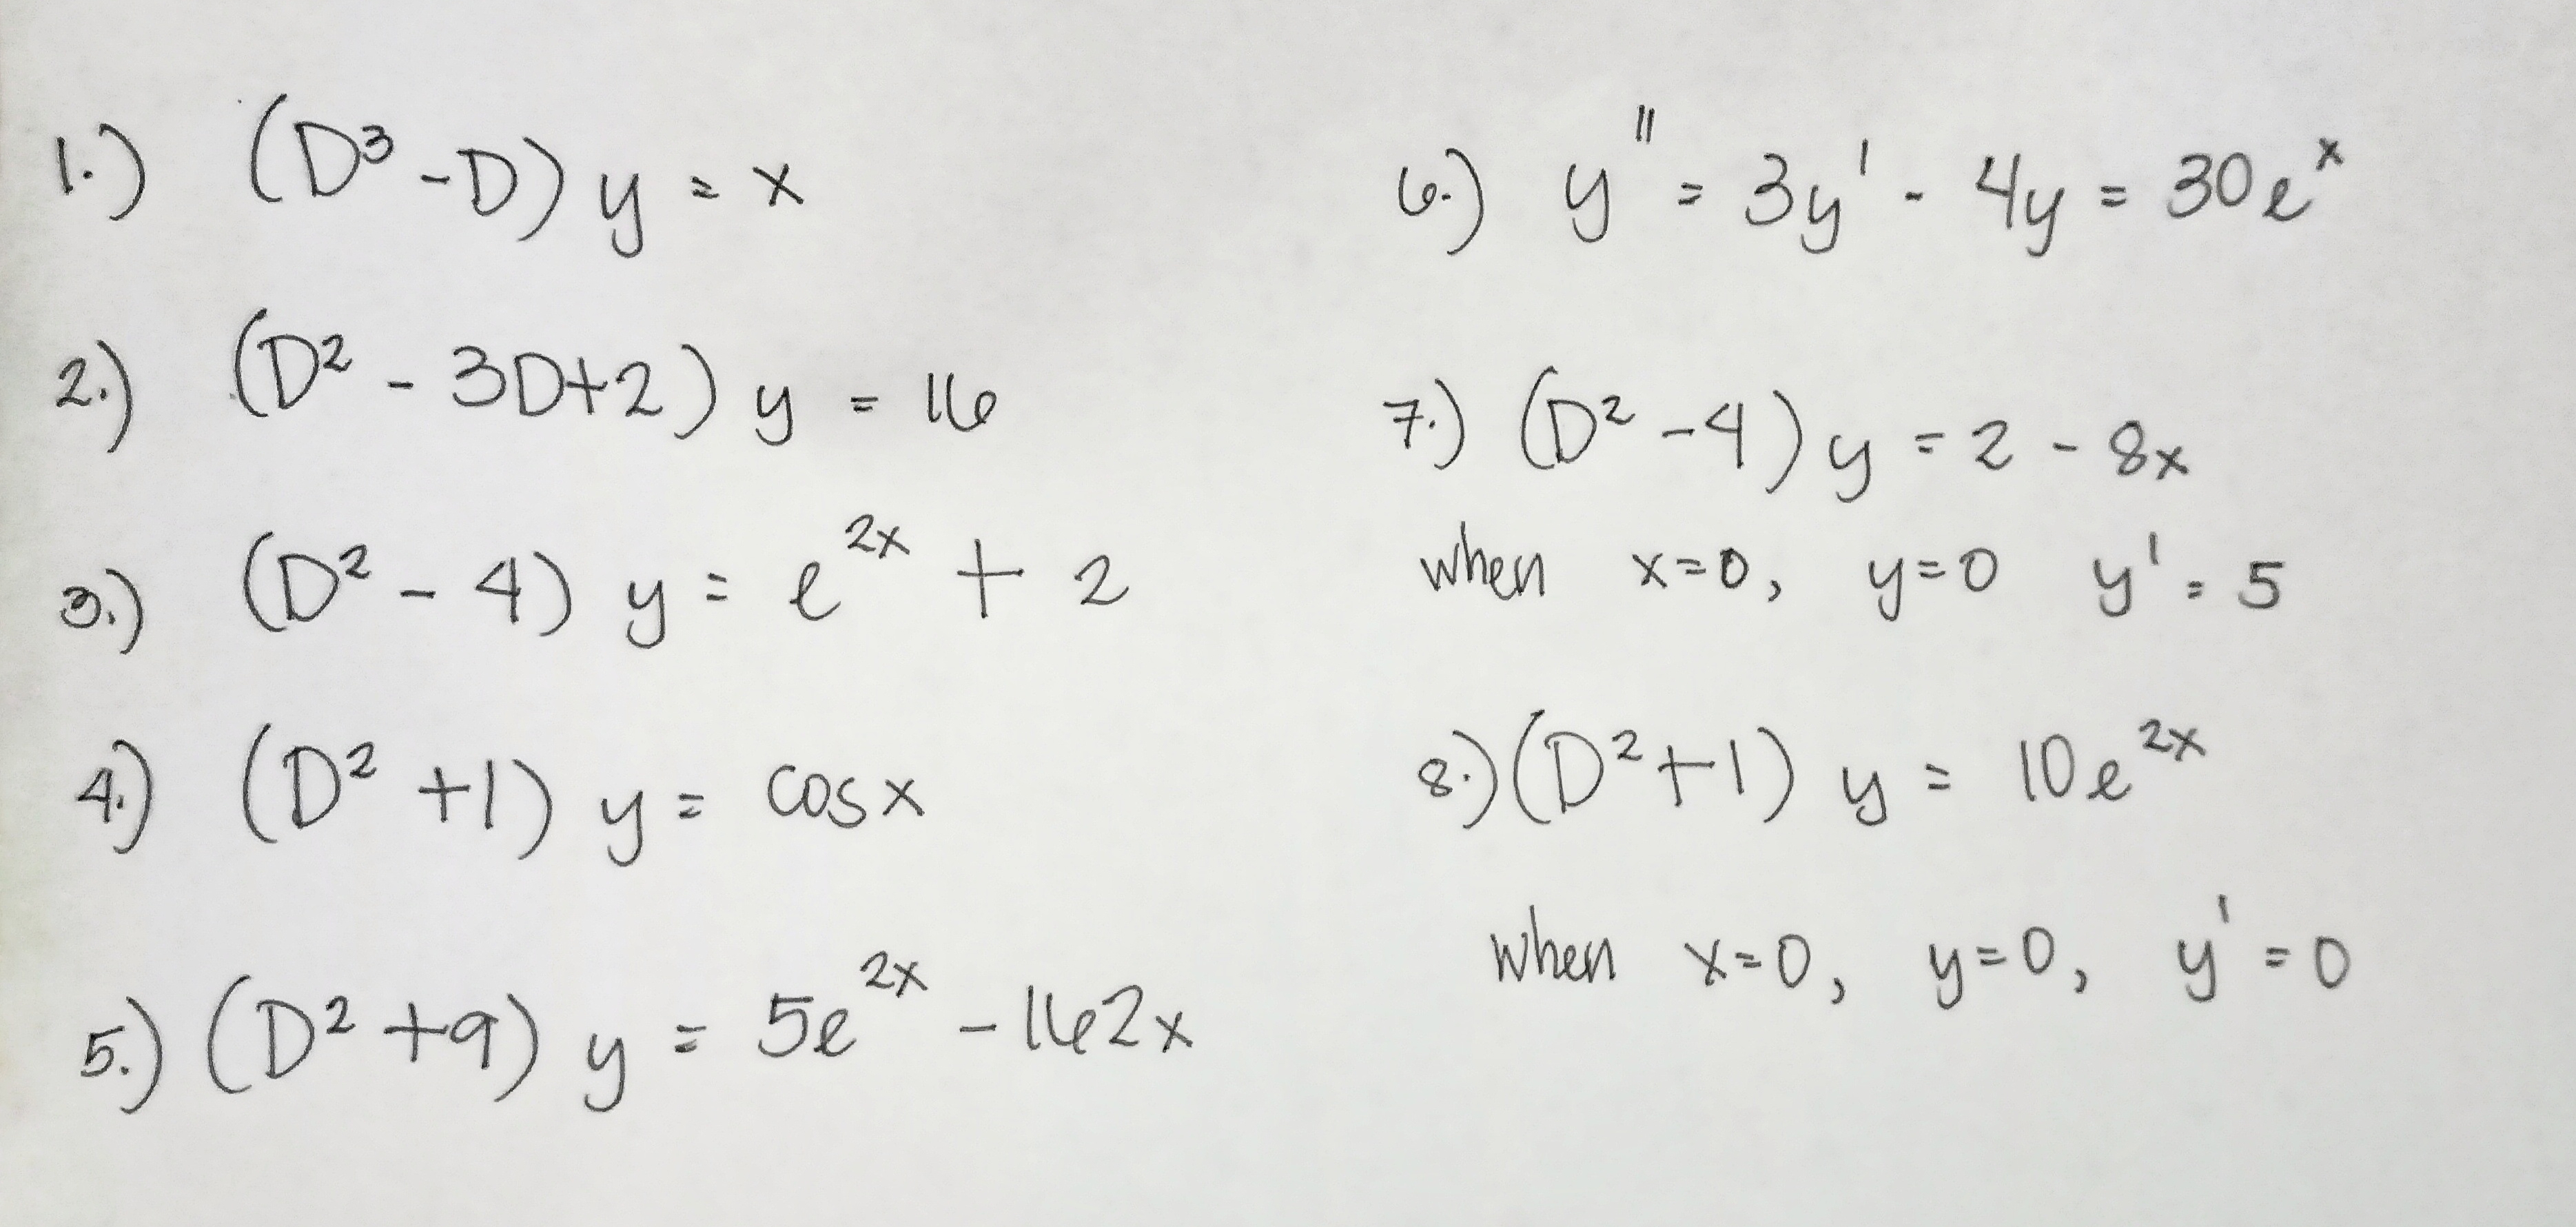 1.) (D³ -D) y = x
2.) (D² - 3D+2) y = 16
3.) (D² - 4) y = e²ˣ + 2
4.) (D² +1) y = cosx
5.) (D² +9) y = 5e²ˣ - 162x
6.) y" = 3y' - 4y = 30eˣ
7.) (D² -4) y = 2 - 8x
when x=0, y=0 y' = 5
8.) (D²+1) y = 10e²ˣ
when x=0, y=0, y' = 0